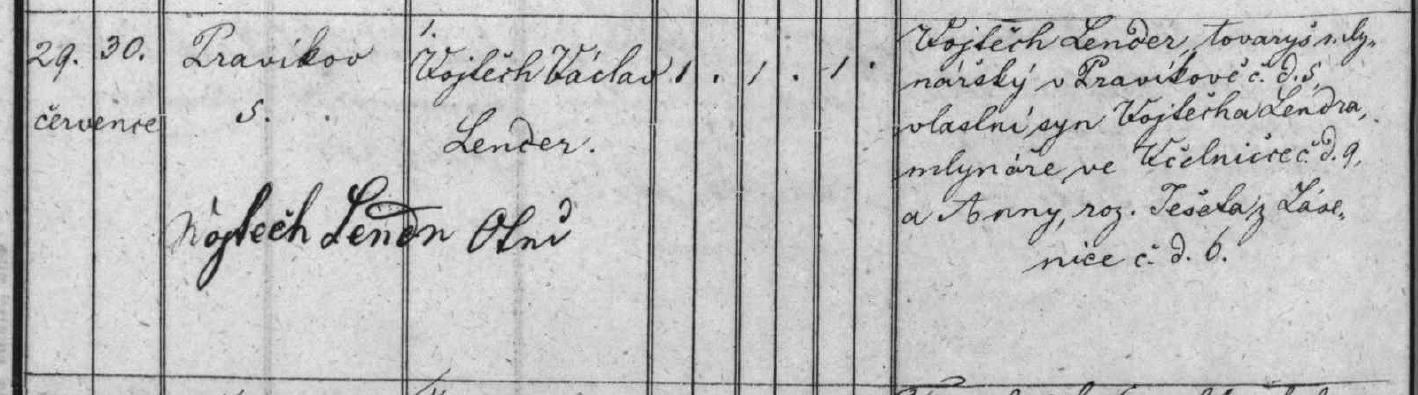 29. 30. Pravíkov Vojtěch Václav 1 . 1 . 1 .
července 5. Lender.
Vojtěch Lender
Vojtěch Lender, tovaryš mly-
nářský v Pravíkově č. d. 5,
vlastní syn Vojtěcha Lendra,
mlynáře ve Včelničce č. d. 9,
a Anny, roz. Tešeta z Láse-
nice č. d. 6.